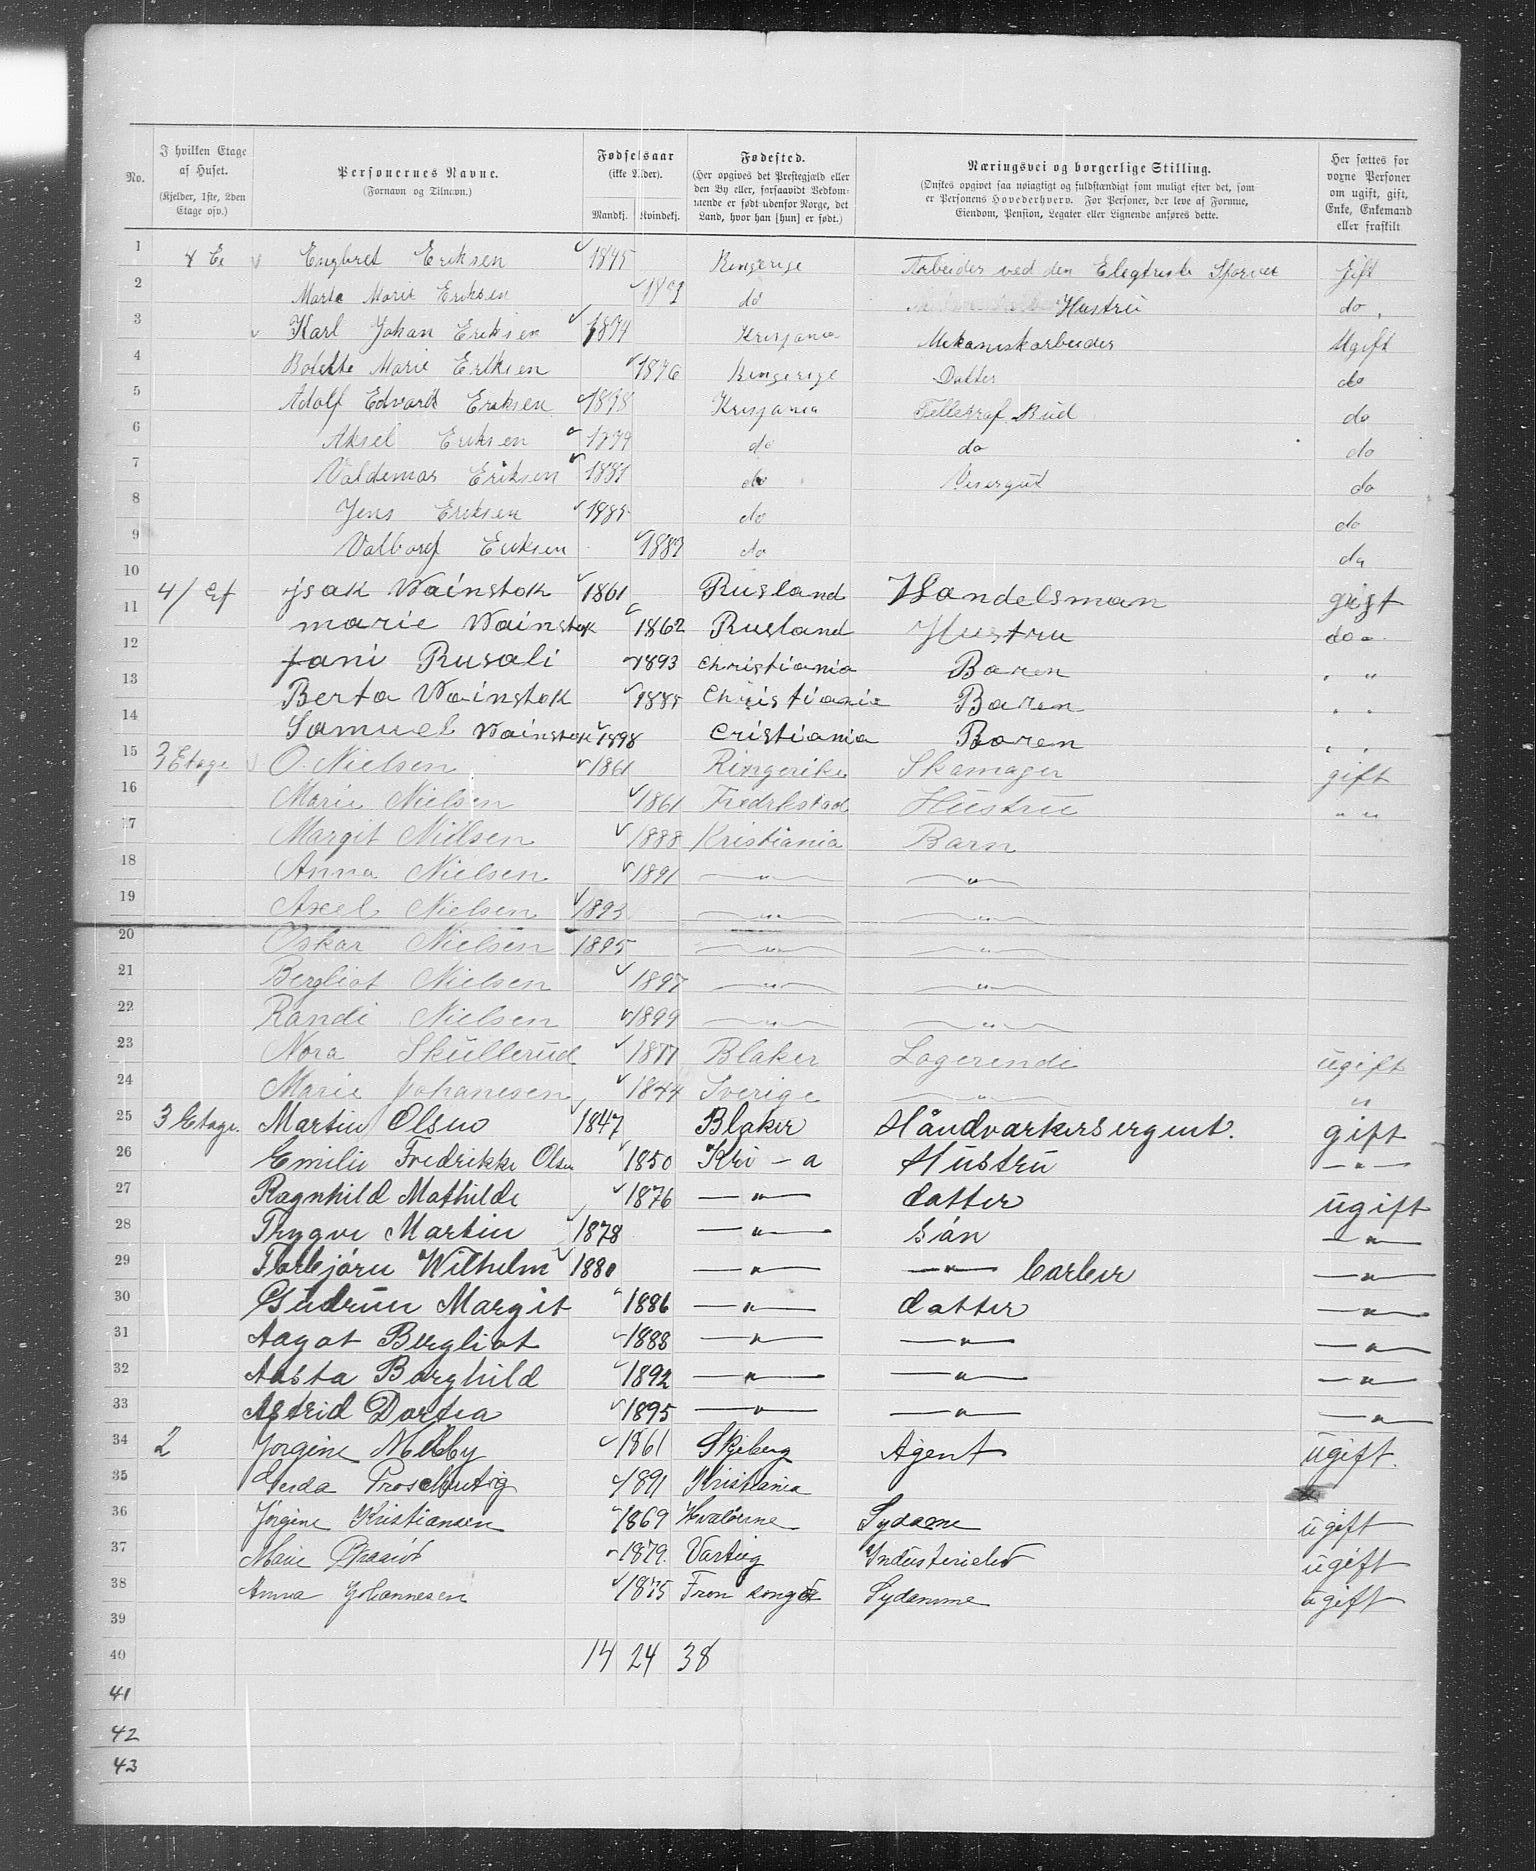 No.
I hvilken Etage af Huset. (Kjelder, 1ste, 2den Etage osv.)
Personernes Navne. (Fornavn og Tilnavn.)
Fødselsaar (ikke Alder). Mandkj. Kvindekj.
Fødested. (Her opgives det Prestegjæld eller den By eller, forsaavidt Vedkommende er født udenfor Norge, det Land, hvor han [hun] er født.)
Næringsvei og borgerlige Stilling. (Ønskes opgivet saa nøiagtigt og fuldstændigt som muligt efter det, som er Personens Hovederhverv. For Personer, der leve af Formue, Eiendom, Pension, Legater eller Lignende anføres dette.
Her sættes for voxne Personer om ugift, gift, Enke, Enkemand eller fraskilt
1 4 Et Engbret Eriksen 1845 Ringerige Arbeider ved den Elegtriske Sporvei Gift
2 Marte Marie Eriksen do Hustru do
3 Karl Johan Eriksen 1874 Krisjania Mekaniskarbeider Ugift
4 Bolette Marie Eriksen 1876 Ringerige Datter do
5 Adolf Edvard Eriksen 1878 Krisjania Tellegraf Bud do
6 Aksel Eriksen 1879 do do do
7 Valdemar Eriksen 1881 do Visergut do
8 Jens Eriksen 1885 do do
9 Valborg Eriksen 1887 do do
10 4/ Et jsak Wainstok 1861 Rusland Handelsman gift
11 marie Wainstok 1862 Rusland Hustru do
12 fani Rusali 1893 Christiania Baren "
13 Berta Wainstok 1885 Christiania Baren "
14 Samuel Wainstok 1898 Cristiania Baren "
15 3 Etage O. Nielsen 1861 Ringerike Skomager gift
16 Marie Nielsen 1861 Fredrikstad Hustru " "
17 Margit Nielsen 1888 Kristiania Barn
18 Anna Nielsen 1891 — " — — " —
19 Axel Nielsen 1893 — " — — " —
20 Oskar Nielsen 1895 — " — — " —
21 Bergliot Nielsen 1897 — " — — " —
22 Randi Nielsen 1899 — " — — " —
23 Nora Skullerud 1877 Blaker Logerendi ugift
24 Marie Johanesen 1844 Sverige — " — "
25 3 Etage. Martin Olsen 1847 Blaker Håndværkersergent. gift
26 Emilie Fredrikke Olsen 1850 Kri - a Hustru — " —
27 Ragnhild Mathilde 1876 — " — datter ugift
28 Trygve Martin 1878 — " — Sån — " —
29 Torbjørn Wilhelm 1880 — " — — " — barber — " —
30 Gudrun Margit 1886 — " — datter — " —
31 Aagot Bergliot 1888 — " — — " — — " —
32 Aasta Borghild 1892 — " — — " — — " —
33 Astrid Dortea 1895 — " — — " — — " —
34 2 Jørgine Melby 1861 Skiberg Agent ugift.
35 Gerda 1891 Kristiania
36 Jørgine Kristiansen 1869 Hvaløerne Sydame ugift
37 Marie 1879. Varteig Industrieled ugift
38 Anna Johannesen 1875 Fron Sydamme ugift
39
40 14 24 38
41
42
43